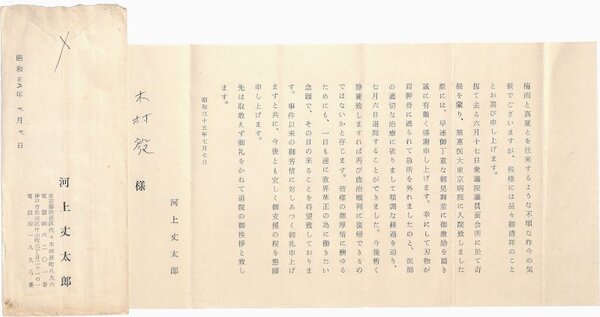 梅雨と真夏とを往来するような不順な昨今の気
候でございますが、皆様には益々御清祥のこと
とお喜び申し上げます。
扨て去る六月十七日衆議院議員面会所に於て奇
禍を蒙り、慈恵医大東京病院に入院致しました
際には、早速御丁重な御見舞並に御激励を頂き
誠に有難く感謝申し上げます。幸にして刃物が
肩胛骨に遮られて急所を外れましたのと、医師
の適切な治療に依りまして順調な経過を辿り、
七月六日退院することができました。今後暫く
静養致しますれば再び政治戦列に復帰できるの
ではないかと存じます。皆様の御厚情に酬ゆる
ためにも、一日も速に政界革正の為に働きたい
念願で、その日の来ることを待望致しておりま
す。事件以来の御芳情に対しあつく御礼申上げ
ますと共に、今後とも宜しく御支援の程を懇願
申し上げます。
先は取敢えず御礼をかねて退院の御挨拶と致し
ます。
昭和三十五年七月七日
河上丈太郎
木村毅様
昭和35年七月七日
河上丈太郎
東京都渋谷区代々木西原町八九六
電話
神戸市長田区片山町三丁目二十一の一
電話五一八九八番